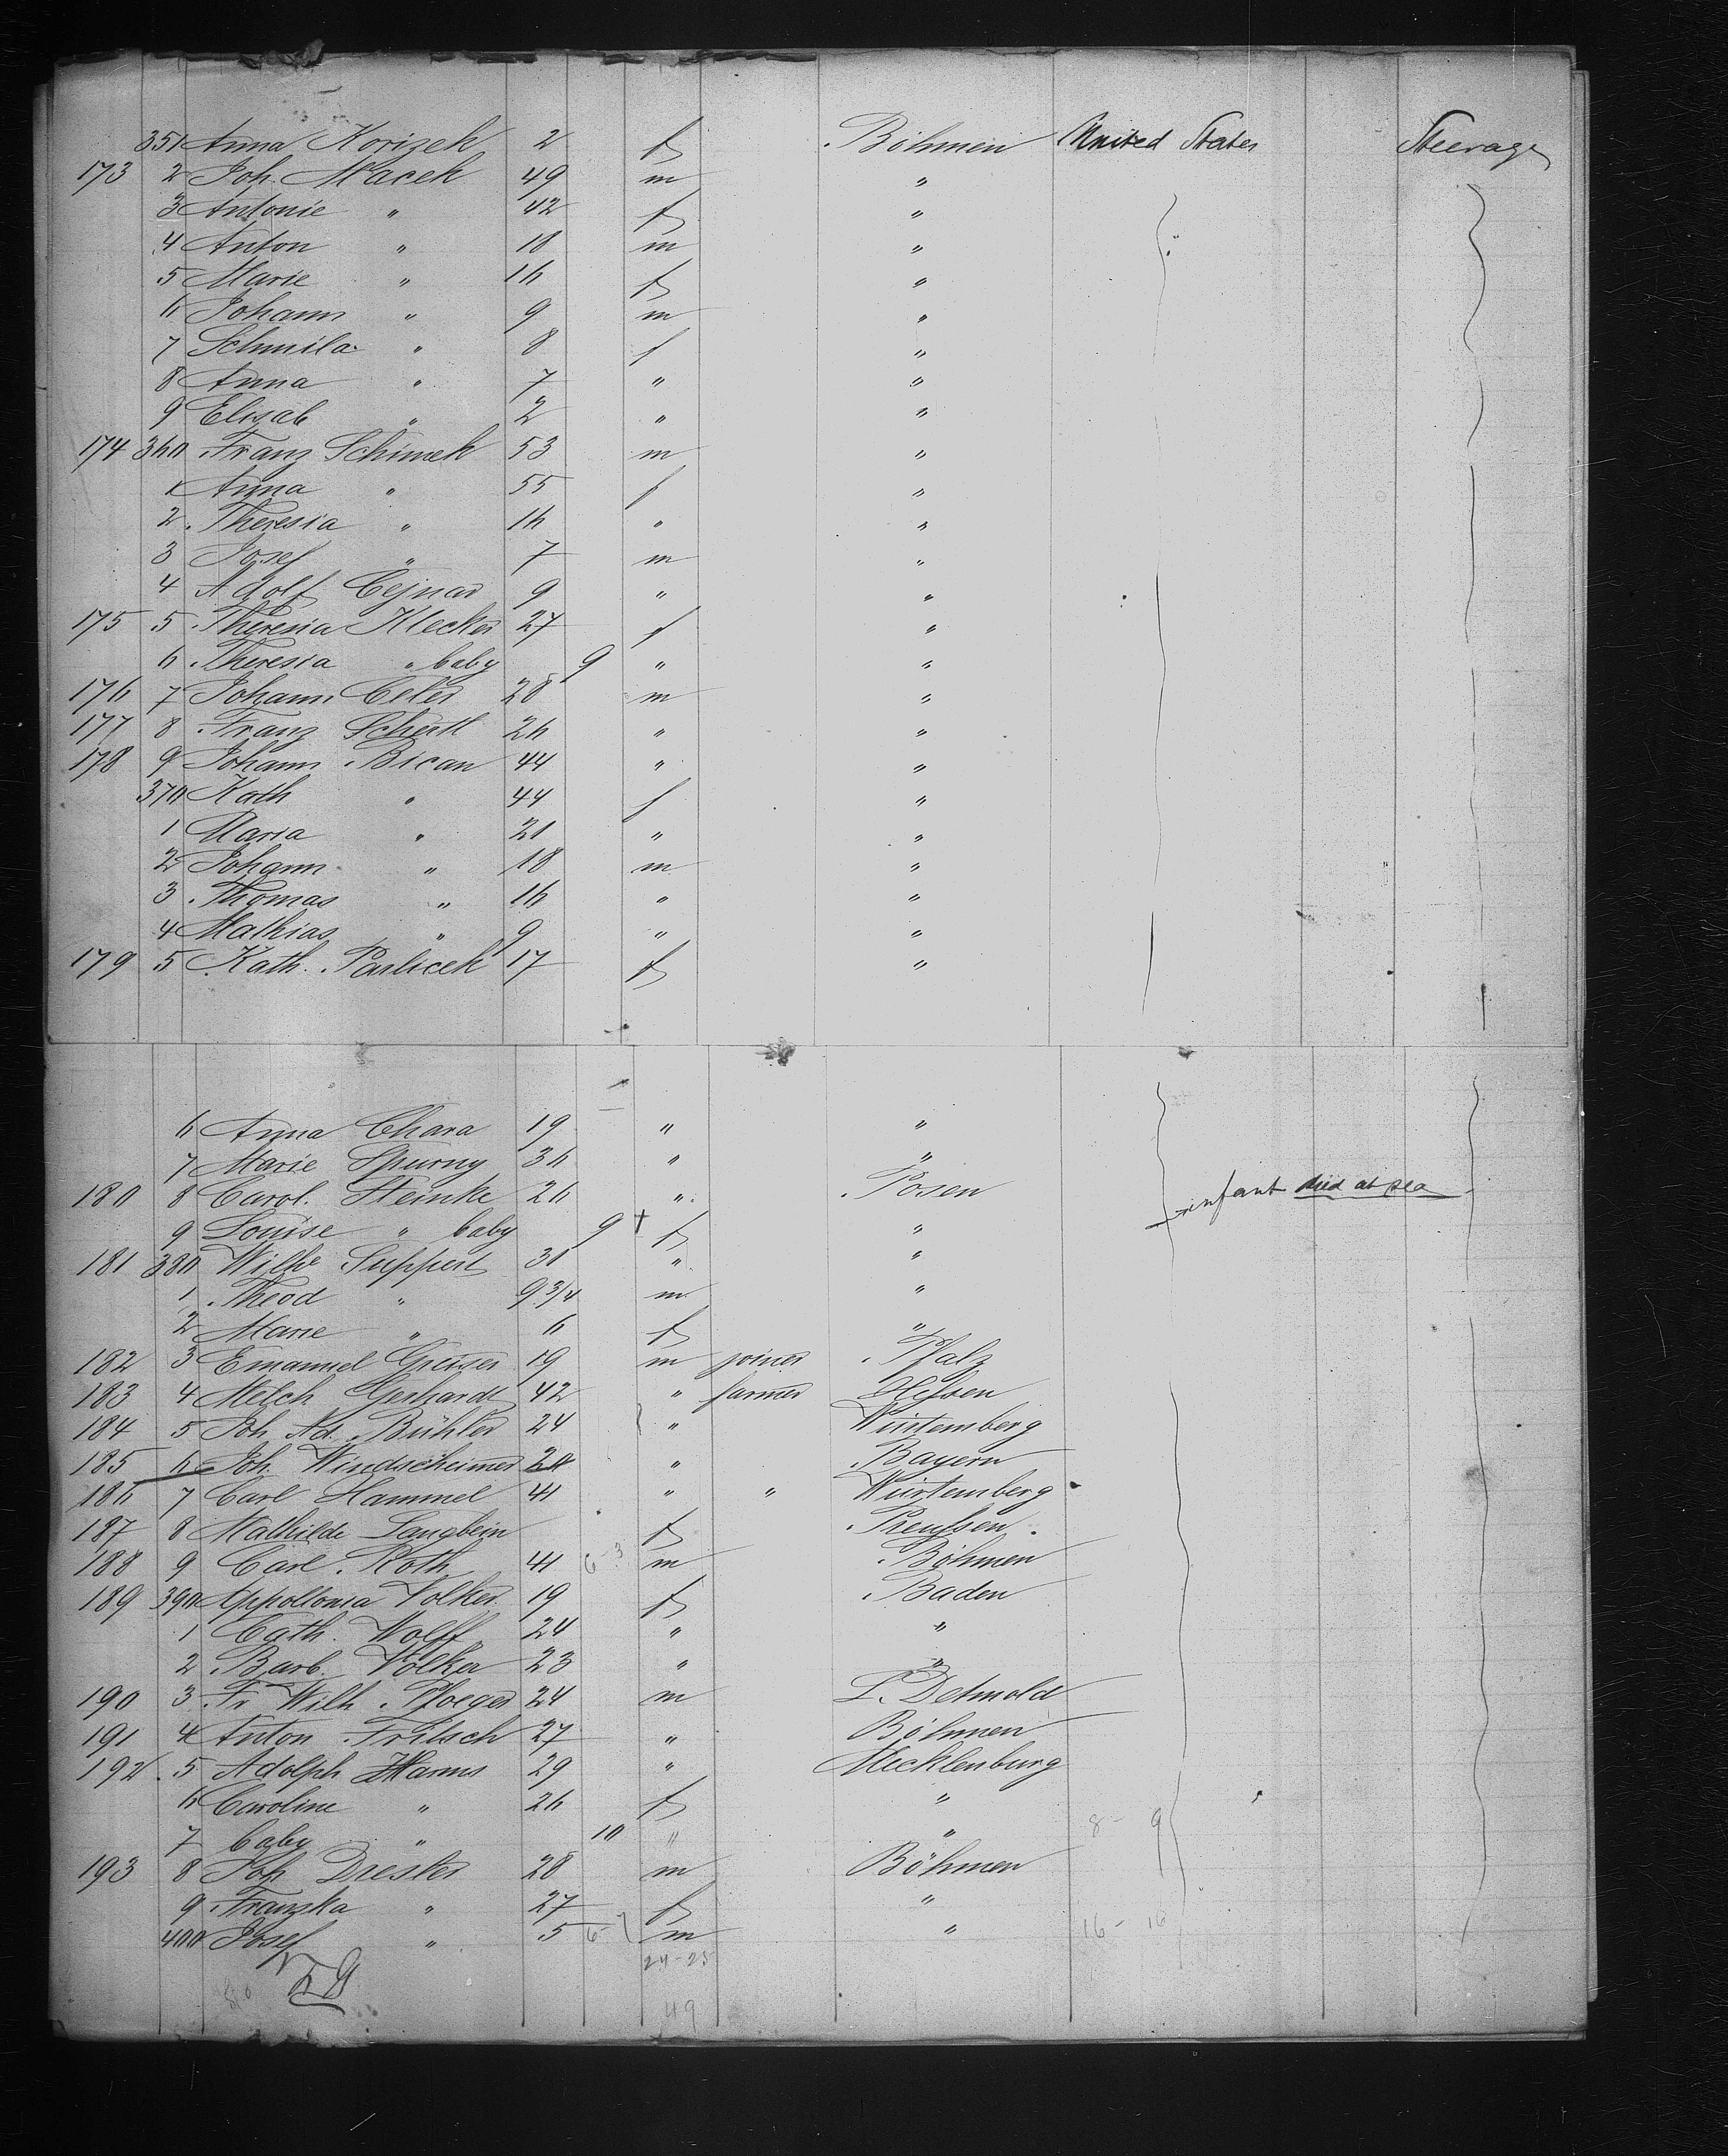 351 Anna Korizek 2 f Böhmen United States Steerage
173 2 Joh. Macek 49 m "
3 Antonie " 42 f "
4 Anton " 18 m "
5 Marie " 16 f "
6 Johann " 9 m "
7 Schmila " 8 f "
8 Anna " 7 " "
9 Elisab " 2 " "
174 360 Franz Schimek 53 m "
1 Anna " 55 f "
2 Theresia " 16 " "
3 Josef " 7 m "
4 Adolf Cejnar 9 " "
175 5 Theresia Klecker 27 f "
6 Theresia " baby 9 " "
176 7 Johann Celer 28 m "
177 8 Franz 26 " "
178 9 Johann Bican 44 " "
370 Kath " 44 f "
1 Maria " 21 " "
2 Johann " 18 m "
3 Thomas " 16 " "
4 Mathias " 9 " "
179 5 Kath. Pavlicek 17 f "
6 Anna Chara 19 " "
7 Marie Spurny 36 " "
180 8 Carol. Steinke 26 " Posen
9 Louise " baby 9 + f " infant died at sea
181 380 Wilhe Suppert 31 " "
1 Theod " 9 3/4 m "
2 Marie " 6 f "
182 3 Emanuel Greiser 19 m joiner Pfalz
183 4 Melch Gerhardt 42 " farmer Hessen
184 5 Joh. Ad. Bühler 24 " Würtemberg
185 6 Joh. Windscheimer " Bayern
186 7 Carl Hammel 41 " " Würtemberg
187 8 Mathilde Langbein f Preussen
188 9 Carl Roth 41 6-3 m Böhmen
189 390 Appollonia Volker 19 f Baden
1 Cath. Wolff 24 " "
2 Barb. Volker 23 " "
190 3 Fr Wilh. Ploeger 24 m L. Detmold
191 4 Anton Fritsch 27 " Böhmen
192 5 Adolph Harms 29 " Mecklenburg
6 Caroline " 26 f "
7 baby " 10 " " 8 - 9
193 8 Joh Dresler 28 m Böhmen
9 Franzka " 27 f "
400 Josef " 5 6- m " 16 - 16
24-25
49